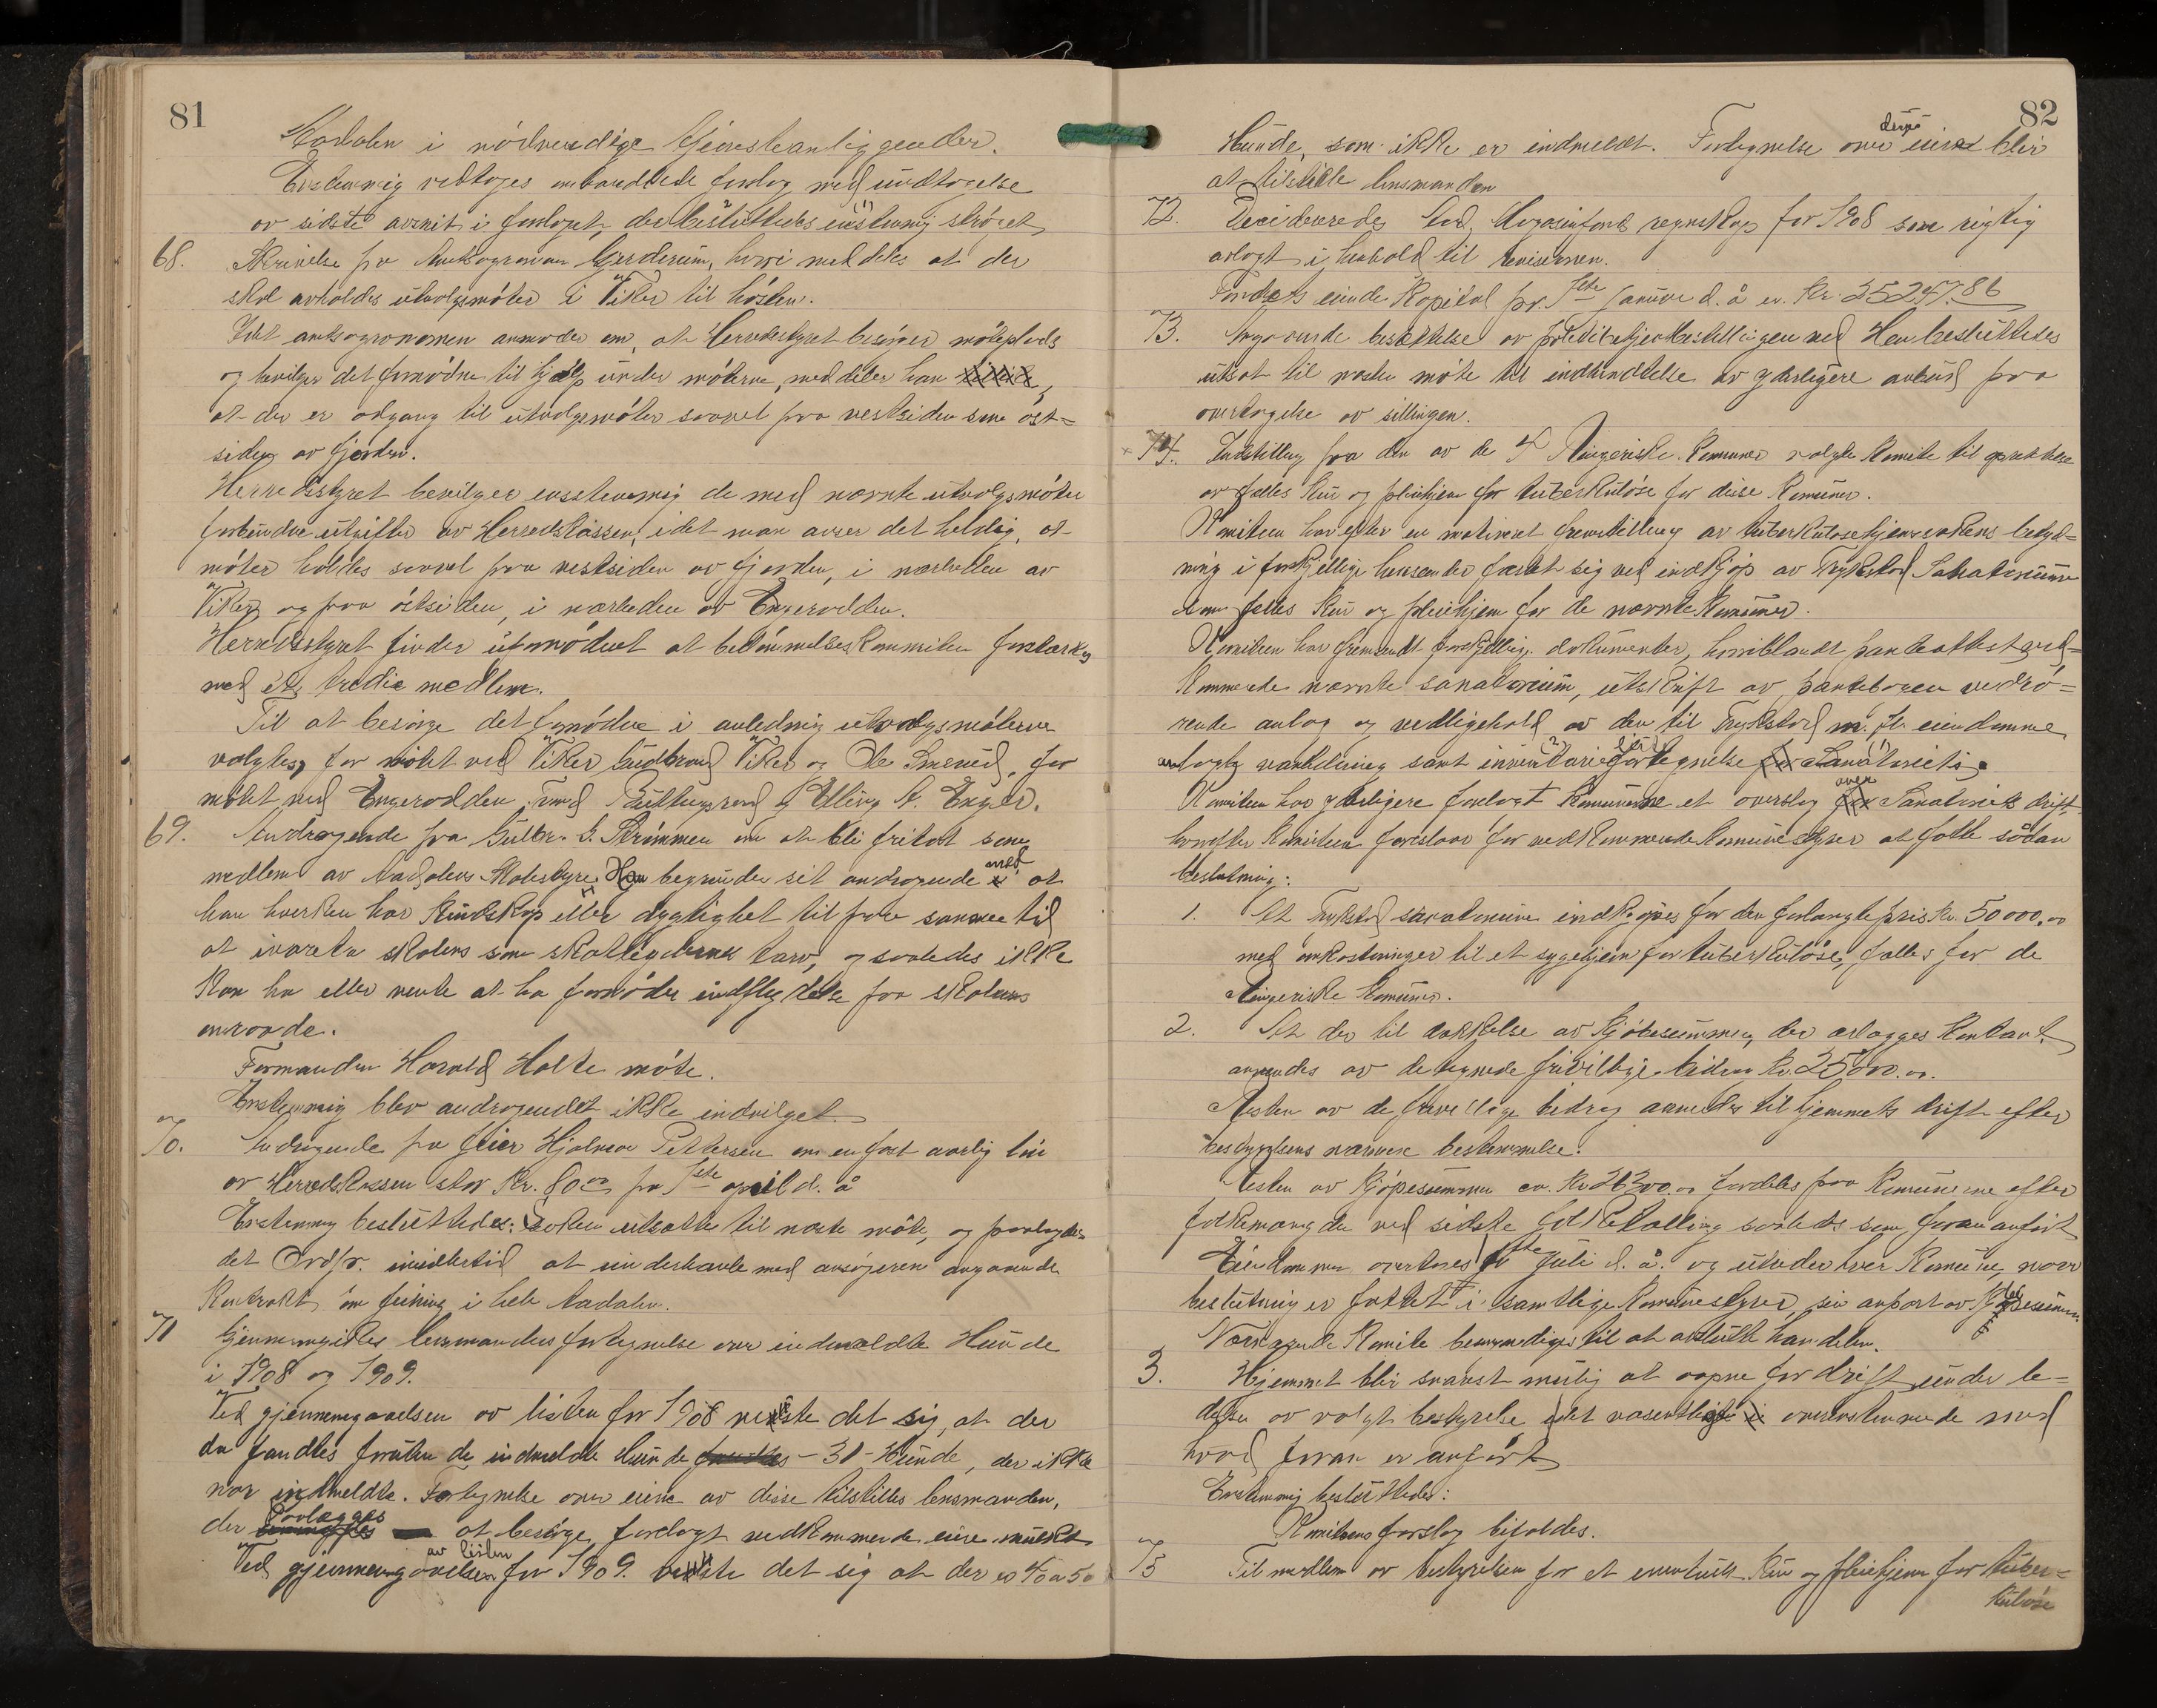 81
Aadalen i nödvendige tjenesteanliggender.
Enstemmig vedtoges omhandlede forslag med undtagelse
av sidste avsnit i forslaget, der besluttedes enstemmig strøget
68. Skrivelse fra Amtsagronom Gjerdrum, hvori meddeles at der
skal avholdes utvalgsmöter i Viker til hösten.
Idet amtsagronomen anmoder om, at Herredstyret besörger möteplads
og bevilger det fornödne til hjælp under möterne, meddeler han
at der er adgang til utvalgsmöter saavel paa vestsiden som öst=
siden av fjorden.
Herredsstyret bevilger enstemmig de med nævnte utvalgsmöter
forbundne utgifter av Herredskassen, idet man anser det heldig, at
möter holdes saavel paa vestsiden av fjorden, i nærheden av
Viker og paa östsiden, i nærheden av Engerodden.
Herredsstyret finder ufornödent at bedömmelseskommiteen forstærkes
med et tredie medlem.
Til at besörge det fornödne i anledning utvalgsmöterne
valgtes, for mötet ved Viker Gudbrand Viker og Ole Smerud, for
mötet ved Engerodden, og Elling A. Enger.
69. Andragende fra Gulbr. G. Strömmen om at bli fritat som
medlem av Aadalens Skolestyre. Han begrunder sit andragende med at
han hverken har kundskap eller dygtighet til paa samme tid
at ivareta skolens som skatteydernes tarv, og saaledes ikke
kan ha eller vente at ha fornöden indflydelse paa skolens
omraade.
Formanden Harald Holte möte.
Enstemmig blev andragendet ikke indvilget.
70. Andragende fra feier Hjalmar Pettersen om en fast aarlig lön
av Herredskassen stor Kr. 80.00 fra 1ste april d. å
Enstemmig besluttedes: Saken utsattes til næste möte, og paalagdes
det Ordf. imidlertid at underhandle med ansögeren angaaende
Kontrakt om feining i hele Aadalen.
71 Gjennemgikkes lensmandens fortegnelse over indmeldte Hunde
i 1908 og 1909.
Ved gjennemgaaelsen av listen for 1908 viste det sig, at der
da fandtes foruten de indmeldte Hunde fandtes - 31 - Hunde, der ikke
var indmeldte. Fortegnelse over eierne av disse tilstilles lensmanden,
der paalægges at besörge, forelagt vedkommende eiere mulkt
Ved gjennemgaaelsen av listen for 1909. viste det sig at der er 40 a 50
82
Hunde, som ikke er indmeldt. Fortegnelse over disses eiere blir
at tilstille lensmanden
72. Decideredes Aad. Magasinfonds regnskap for 1908 som rigtig
avlagt i henhold til revisionen.
Fondets eiende Kapital pr. 1ste Januar d. å er. Kr. 25247.86
73. Angaaende besættelse av politibetjentbestillingen ved Hen besluttedes
utsat til næste möte til indhendtelse av yderligere anbud paa
overtagelse av stillingen.
74. Indstilling fra den av de 4 Ringeriske Komuner valgte Komite til oprettelse
av fælles Kur og pleiehjem for tuberkulöse for disse Komuner.
Komiteen har efter en motiveret fremstilling av tuberkulosehjemsakens betyd=
ning i forskjellige henseender fæstet sig ved indkjöp av Trykstad Sanatorium
som fælles Kur og pleiehjem for de nævnte Komuner.
Komiteen har fremsendt forskjellige dokumenter, hvoriblandt panteattest ved=
kommende nævnte sanatorium, utskrift av pantebogen vedrö=
rende anlæg og vedligehold av den til Trykstad m. fl. eiendomme
anlagte vandledning samt inventariefortegnelse Sanatoriets
Komiteen har yderligere forelagt Komunerne et overslag over Sanatoriets drift
hvorefter Komiteen foreslaar for vedkommende Komunestyrer at fatte sådan
beslutning:
1. At Trykstad sanatorium indkjöpes for den forlangte pris Kr. 50000.00
med omkostninger til et sygehjem for tuberkulöse, fælles for de
Ringeriske Komuner.
2. At der til dækkelse av Kjöbesummen, der erlægges Kontant
anvendes av de tegnede frivillige bidrag Kr. 25000.00.
Resten av de frivillige bidrag anvendes til hjemmets drift efter
bestyrelsens nærmere bestemmelse.
Resten av Kjöpesummen ca. Kr 26300.00 fordeles paa Komunerne efter
folkemængden ved sidste folketælling saaledes som foran anfört
Eiendommen overtages 1ste Juli d. å. og utreder hver Komune, naar
beslutning er fattet i samtlige Komunestyrer, sin anpart av Kjöpesummen
Nærværende Komite bemyndiges til at avslutte handelen.
3. Hjemmet blir snarest mulig at aapne for drift under le=
delse av valgt bestyrelse i det væsentlige overensstemmende med
hvad foran er anfört
Enstemmig besluttedes:
Komiteens forslag bifaldes.
75 Til medlem av bestyrelsen for et eventuelt Kur og pleiehjem for tuber=
kulöse